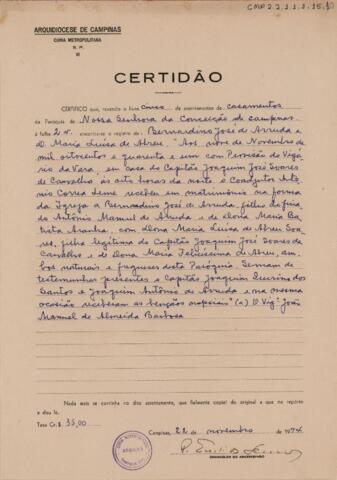 CMP 2.2.1.1.1.15.1
ARQUIDIOCESE DE CAMPINAS
CURIA METROPOLITANA
CERTIDÃO
CERTIFICO que, revendo o livro cinco de assentamentos de casamentos
da Paróquia de Nossa Senhora da Conceição de Campinas
à folha 2 v. encontrei o registro de: Bernardino José de Arruda e
D. Maria Luisa de Abreu "Aos nove de Novembro de
mil oitocentos e quarenta e um com Provisão do Vigá-
rio da Vara, em casa do Capitão Joaquim José Soares
de Carvalho às oito horas da noite o Coadjutor Antô-
nio Correa Leme recebeu em matrimônio na forma
da Igreja a Bernardino José de Arruda, filho legítimo
de Antônio Manuel de Arruda e de Dona Maria Ba-
tista Aranha com Dona Maria Luisa de Abreu Soa-
res, filha legítima do Capitão Joaquim José Soares de
Carvalho e de Dona Maria Felicissima de Abreu, am-
bos naturais e fregueses desta Paróquia. Serviram de
testemunhas presentes o Capitão Joaquim Quirino dos
Santos e Joaquim Antônio de Arruda e na mesma
ocasião receberam as bençãos nupciais" (a) O Vigº João
Manuel de Almeida Barbosa
Nada mais se continha no dito assentamento, que fielmente copiei do original a que me reporto
e dou fé.
Taxa Cr.$ 35,00
Campinas, 22 de novembro de 1974